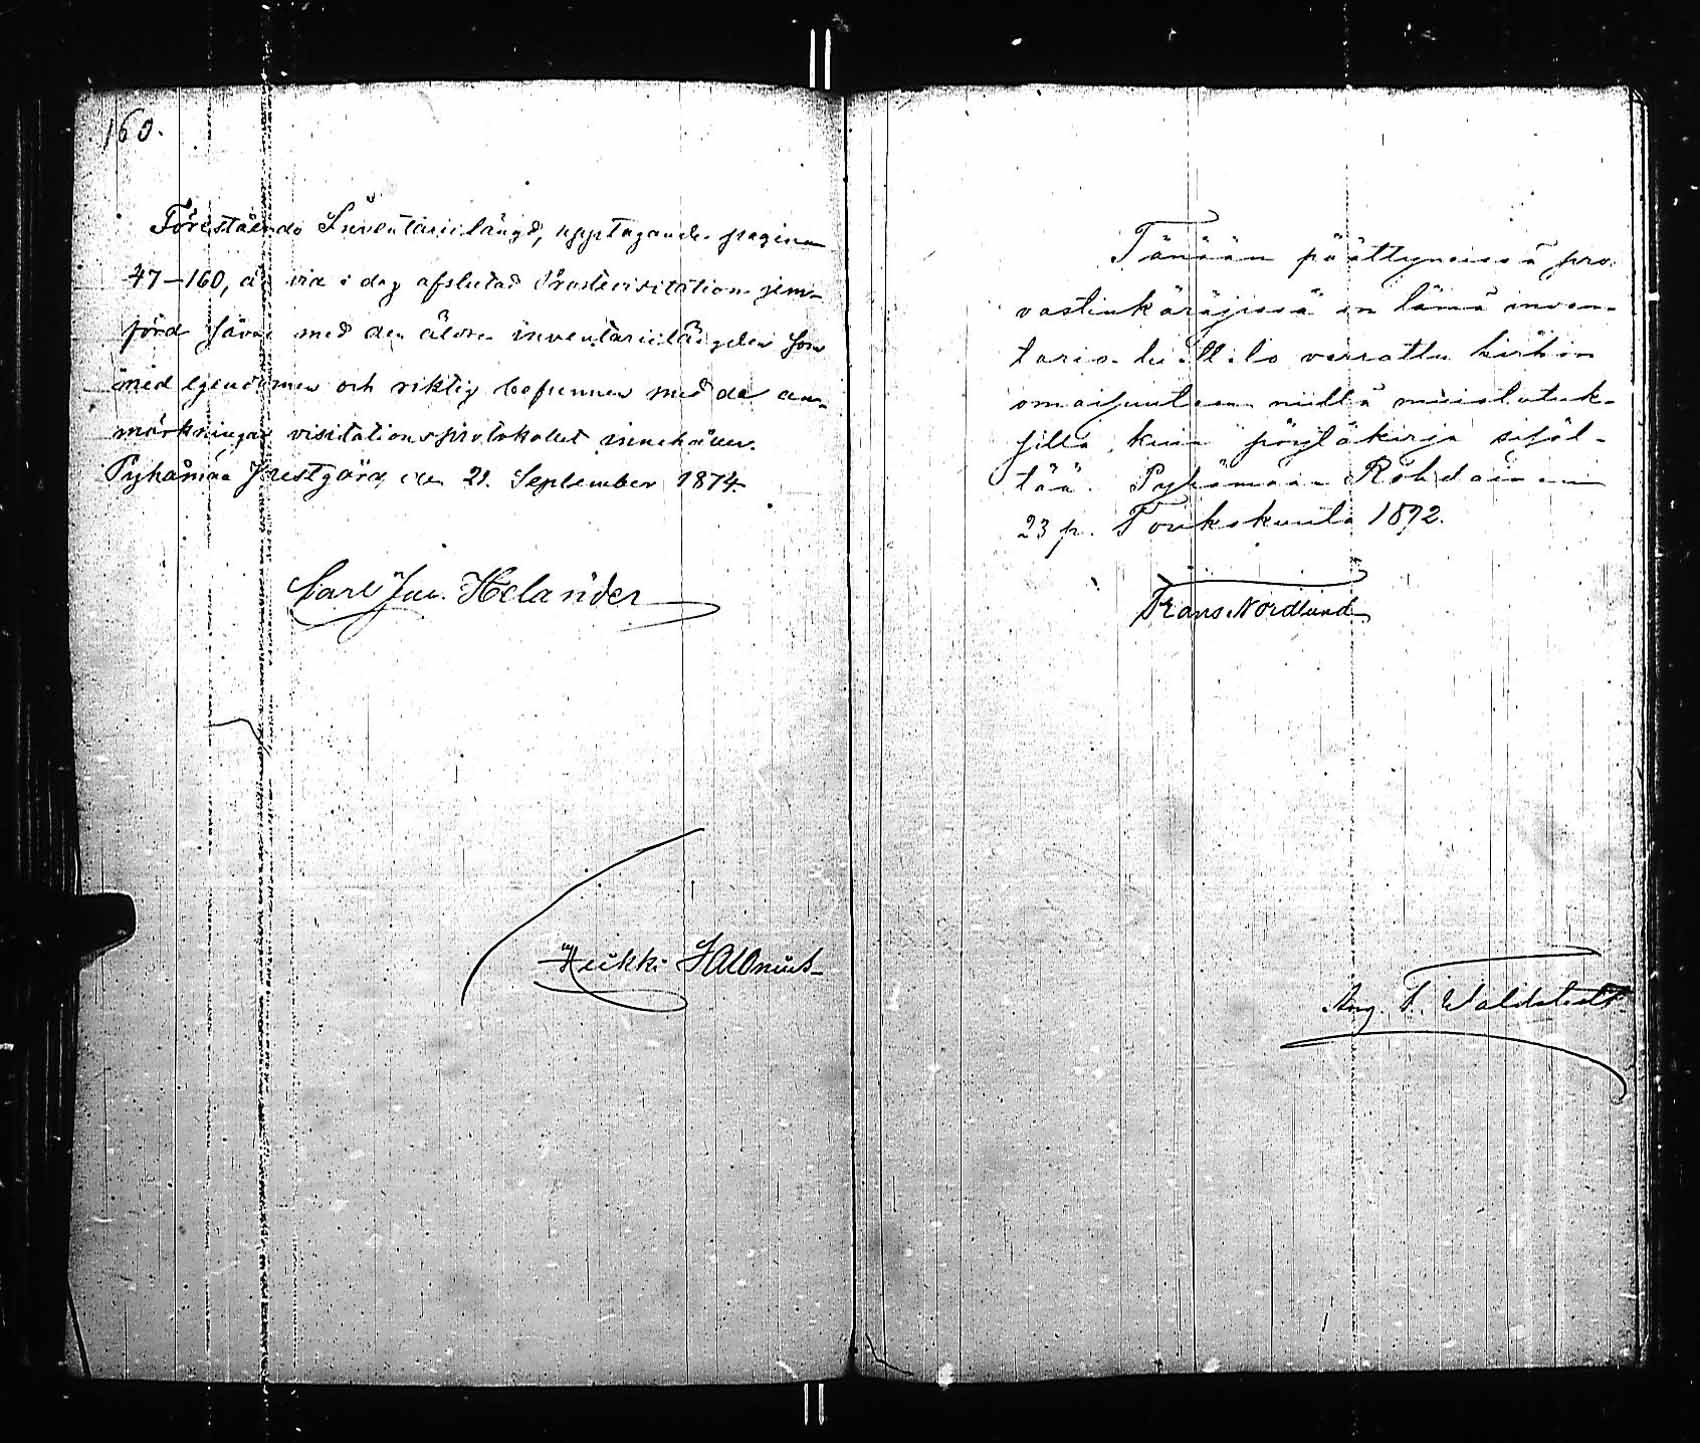 160.
Förestående Inventarielängd, upptagande pagina
47–160, är vid i dag afslutad Prostevisitation jem-
förd såväl med den äldre inventarielängden som
med egendomen och riktig befunnen med de an-
märkningar visitationsprotokollet innehåller.
Pyhämaa Prestgård den 21. September 1874.
Carl Jac. Helander
Heikki
Tänään päättyneissä pro-
vastinkäräjissä on tämä inven-
tario luettelo verrattu kirkon
omaisuuteen niillä muistutuk-
silla, kuin pöytäkirja sisäl-
tää. Pyhämaan Rohdaisissa
23 p. Toukokuuta 1892.
Frans Nordlund
Aug. F. Waldstedt